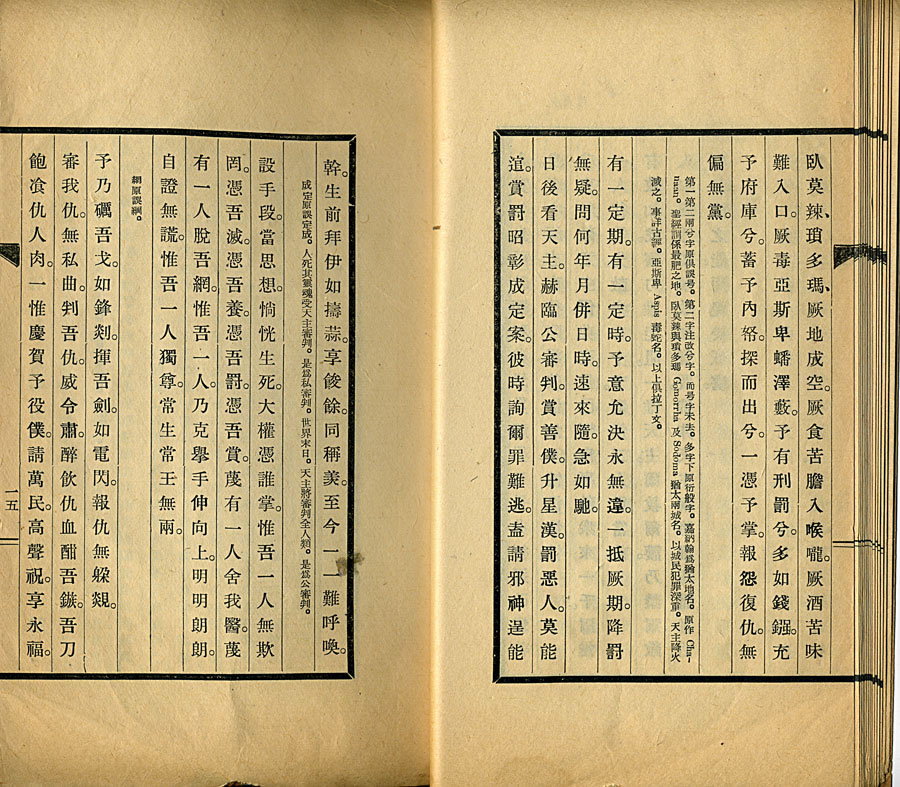 臥莫辣、瑣多瑪、厥地成空。厥食苦膽入喉嚨。厥酒苦味
難入口。厥毒亞斯卑蟠澤藪。予有刑罰兮。多如錢鏹。充
予府庫兮。蓄予內帑。探而出兮。一憑予掌。報怨復仇。無
偏無黨。
第一第二兩兮字原俱誤号。第二字注改兮字。而号字未去。多字下原衍般字。嘉納翰爲猶太地名。原作 Cha-
naan。聖經謂係最肥之地。臥莫辣與瑣多瑪 Gomorrha 及 Sodoma 猶太兩城名。以城民犯罪深重。天主降火
滅之。事詳古經。亞斯卑 Aspis 毒蛇名。以上俱拉丁文。
有一定期。有一定時。予意允決永無違。一抵厥期。降罰
無疑。問何年月併日時。速來隨。急如馳。
日後看天主。赫臨公審判。賞善僕。升星漢。罰惡人。莫能
逭。賞罰昭彰成定案。彼時詢爾罪難逃。盍請邪神逞能
幹。生前拜伊如擣蒜。享餕餘。同稱羨。至今一一難呼喚。
成定原誤定成。人死其靈魂受天主審判。是爲私審判。世界末日。天主將審判全人類。是爲公審判。
設手段。當思想。惝恍生死。大權憑誰掌。惟吾一人無欺
罔。憑吾滅。憑吾養。憑吾罰。憑吾賞。蔑有一人舍我醫。蔑
有一人脫吾網。惟吾一人。乃克擧手伸向上。明明朗朗。
自證無謊。惟吾一人獨尊。常生常王無兩。
網原誤綱。
予乃礪吾戈。如鋒剡。揮吾劍。如電閃。報仇無躱覢。
審我仇。無私曲。判吾仇。威令肅。醉飲仇血酣吾鏃。吾刀
飽飡仇人肉。一惟慶賀予役僕。請萬民。高聲祝。享永福。
一五